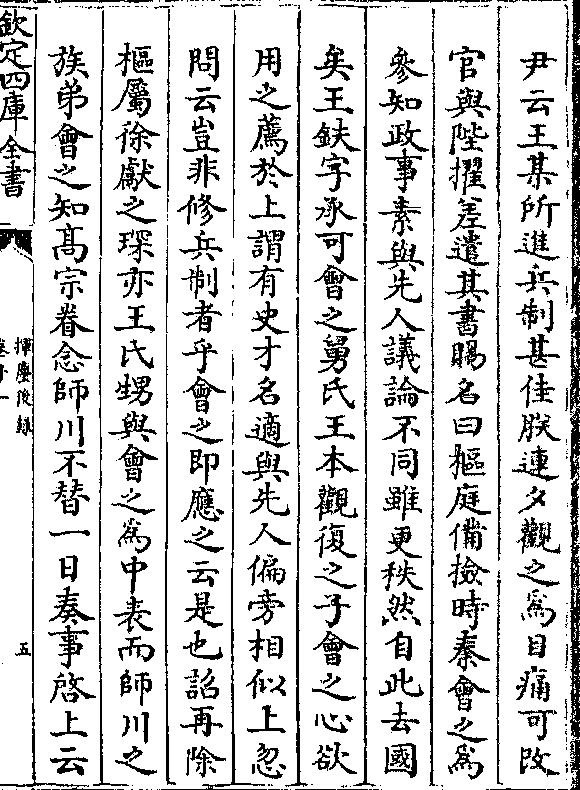 尹云王某所進兵制甚佳朕連夕觀之為目痛可改
官與陞擢差遣其書賜名曰樞庭備撿時秦會之為
參知政事素與先人議論不同雖更秩然自此去國
矣王鈇字承可會之舅氏王本觀復之子會之心欲
用之薦於上謂有史才名適與先人偏旁相似上忽
問云豈非修兵制者乎會之即應之云是也詔再除
樞屬徐獻之琛亦王氏甥與會之為中表而師川之
族弟會之知髙宗眷念師川不替一日奏事啓上云
欽定四庫全書
揮麈後録
卷十一
五